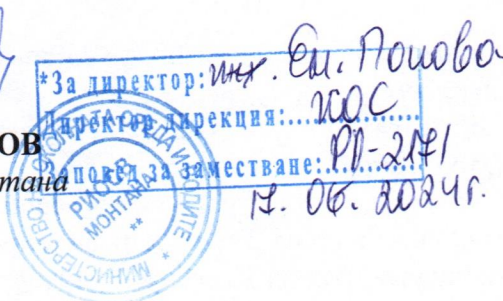 *За директор: инж. Ел. Попова
Директор дирекция:.... КОС
ОВ
Заповед за заместване: РД-2171
тана
17. 06. 2024г.
МИНИСТЕРСТВО НА ОКОЛНАТА СРЕДА И ВОДИТЕ
РИОСВ
МОНТАНА
**